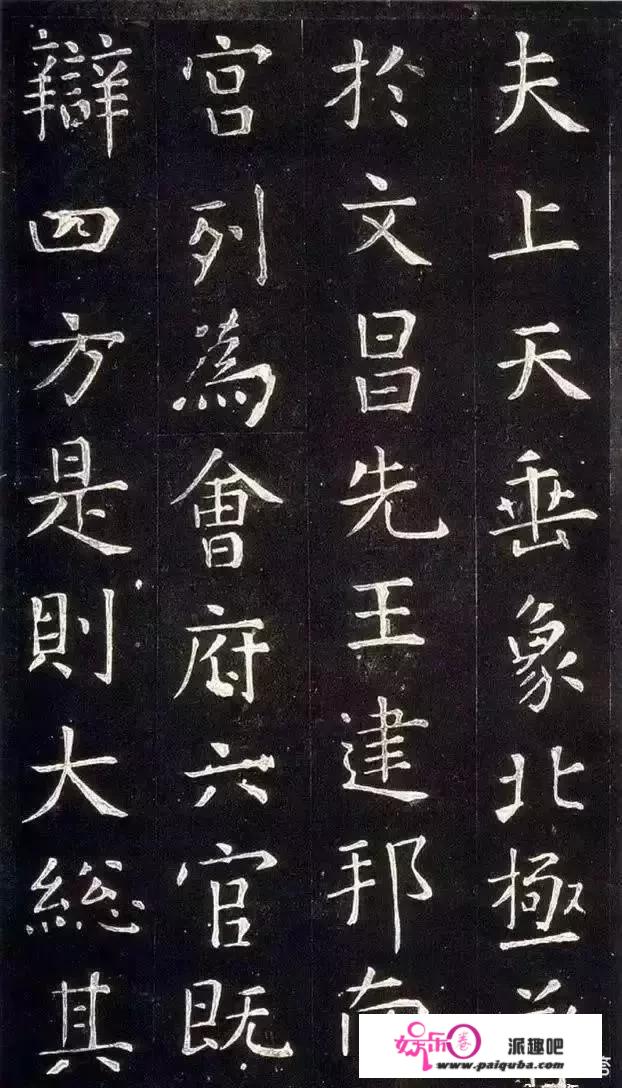 夫上天垂象北極
於文昌先王建邦南
宮列為會府六官既
辯四方是則大総其
娱乐圈 派趣吧
www.paiquba.com